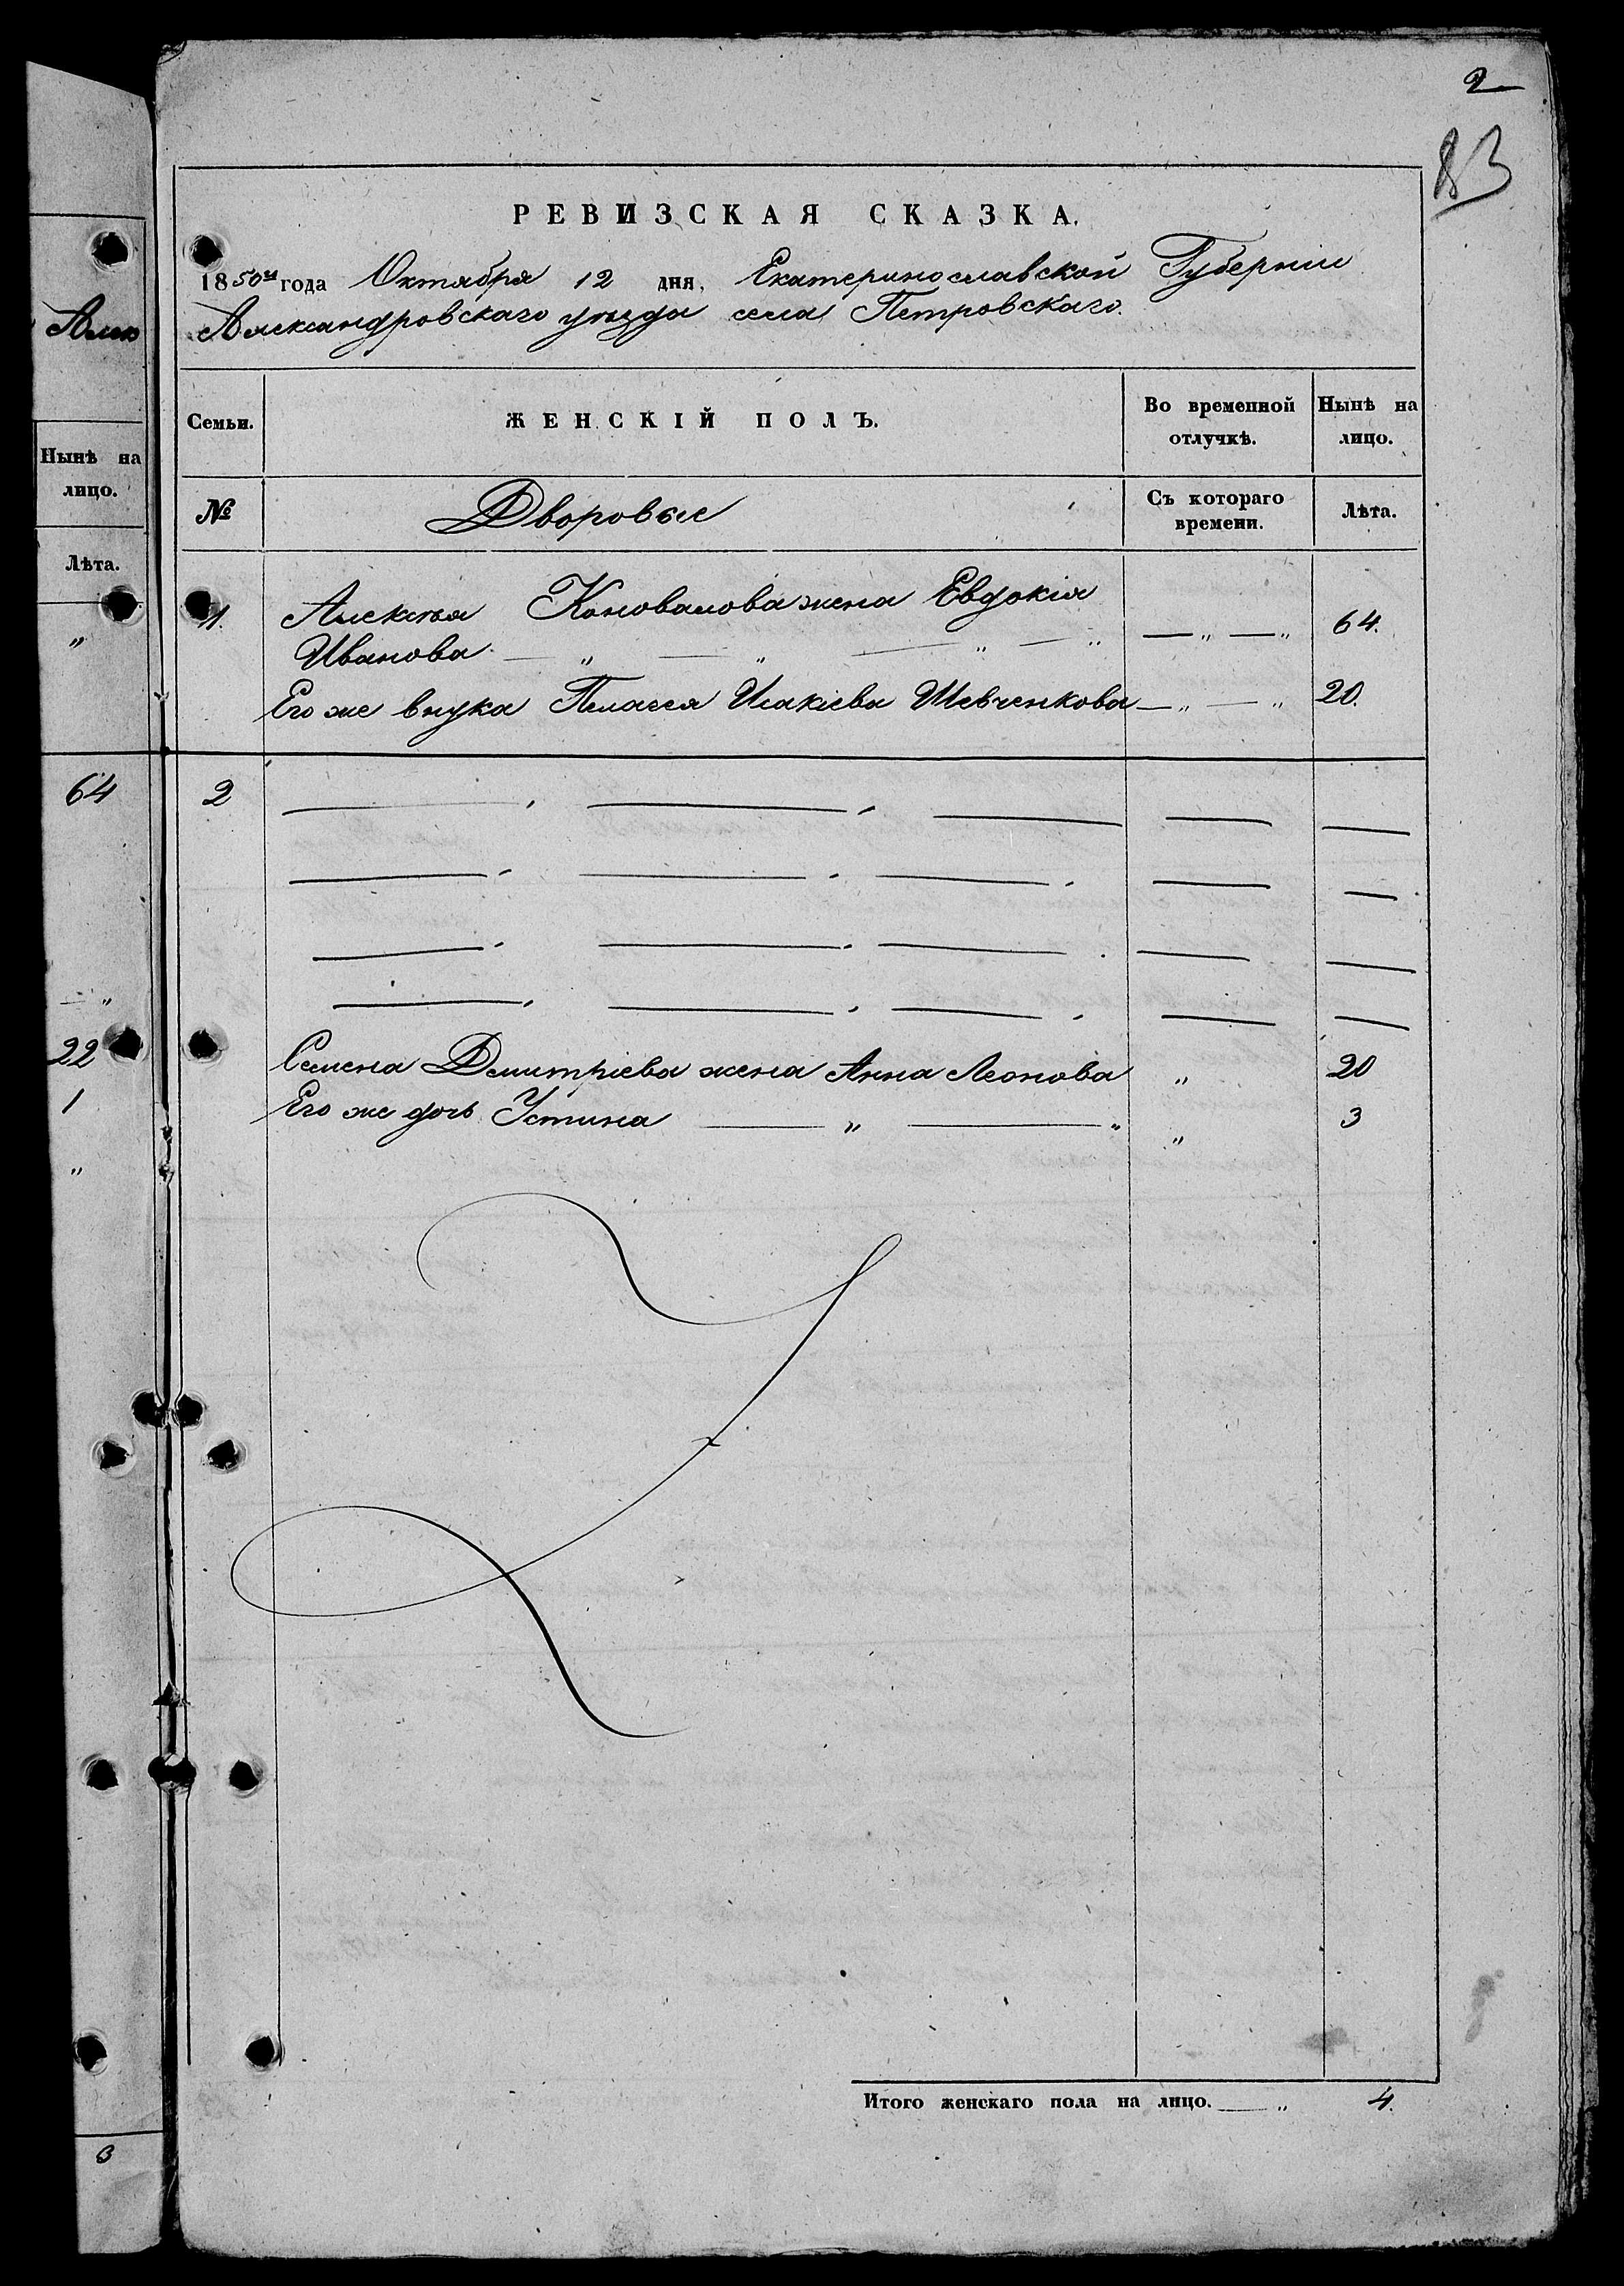 2
83
РЕВИЗСКАЯ СКАЗКА.
1850го года Октября 12 дня, Екатеринославской Губерніи
Александровскаго уѣзда села Петровскаго.
Алек
Нынѣ на
лицо.
Лѣта.
"
64
"
22
1
"
3
Семьи.
ЖЕНСКІЙ ПОЛЪ.
Во временной
отлучкѣ.
Нынѣ на
лицо.
№
Дворовые
Съ котораго
времени.
Лѣта.
1. Алексѣя Коновалова жена Евдокія
Иванова — " — " — " — " — " — " 64.
Его же внука Пелагея Исакіева Шевченкова — " — " 20.
2
Семена Дмитріева жена Анна Леонова " 20
Его же дочь Устина — " — " " 3
Итого женскаго пола на лицо. — " 4.